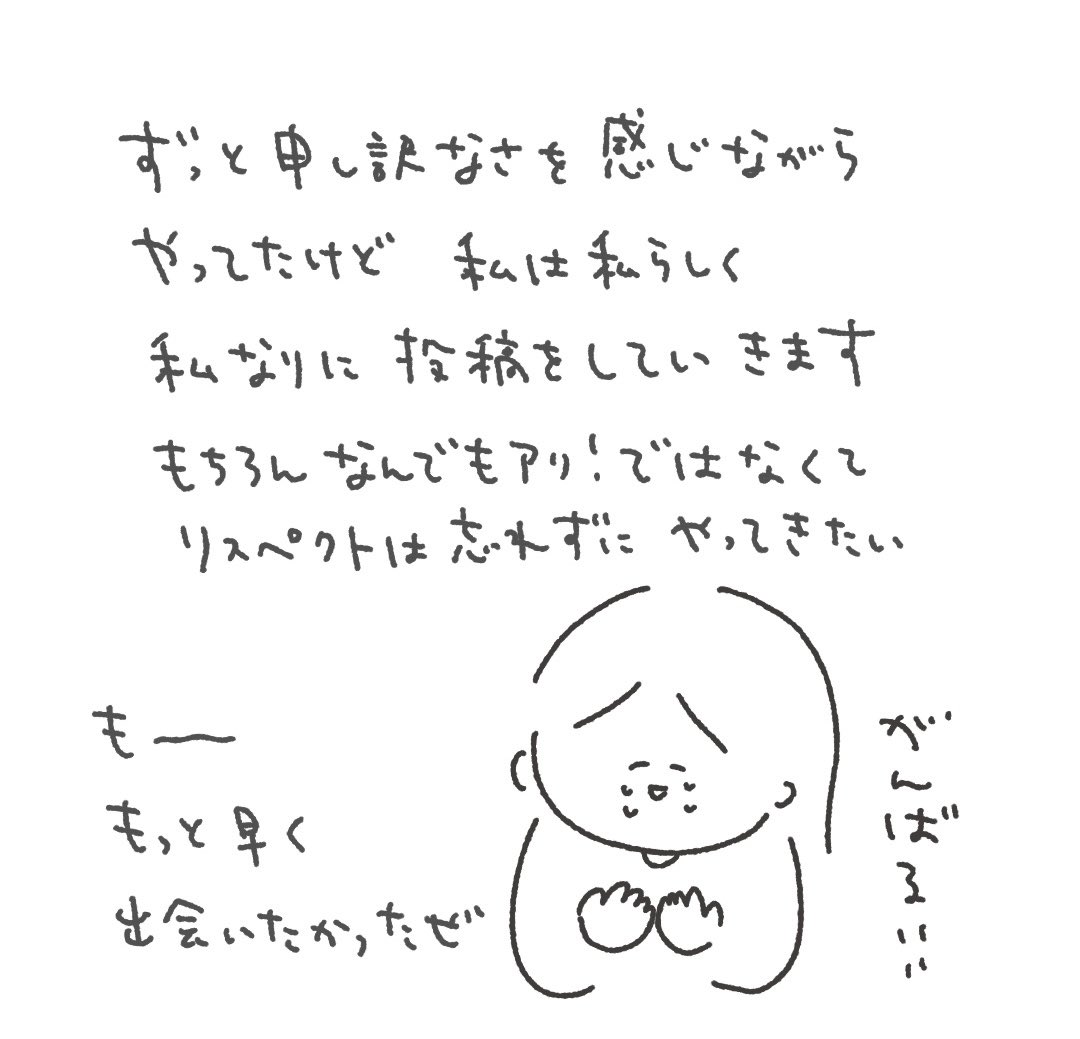 ずっと申し訳なさを感じながら
やってたけど 私は私らしく
私なりに投稿をしていきます
もちろんなんでもアリ!ではなくて
リスペクトは忘れずに やってきたい
もー
もっと早く
出会いたかったぜ
がんばるいい